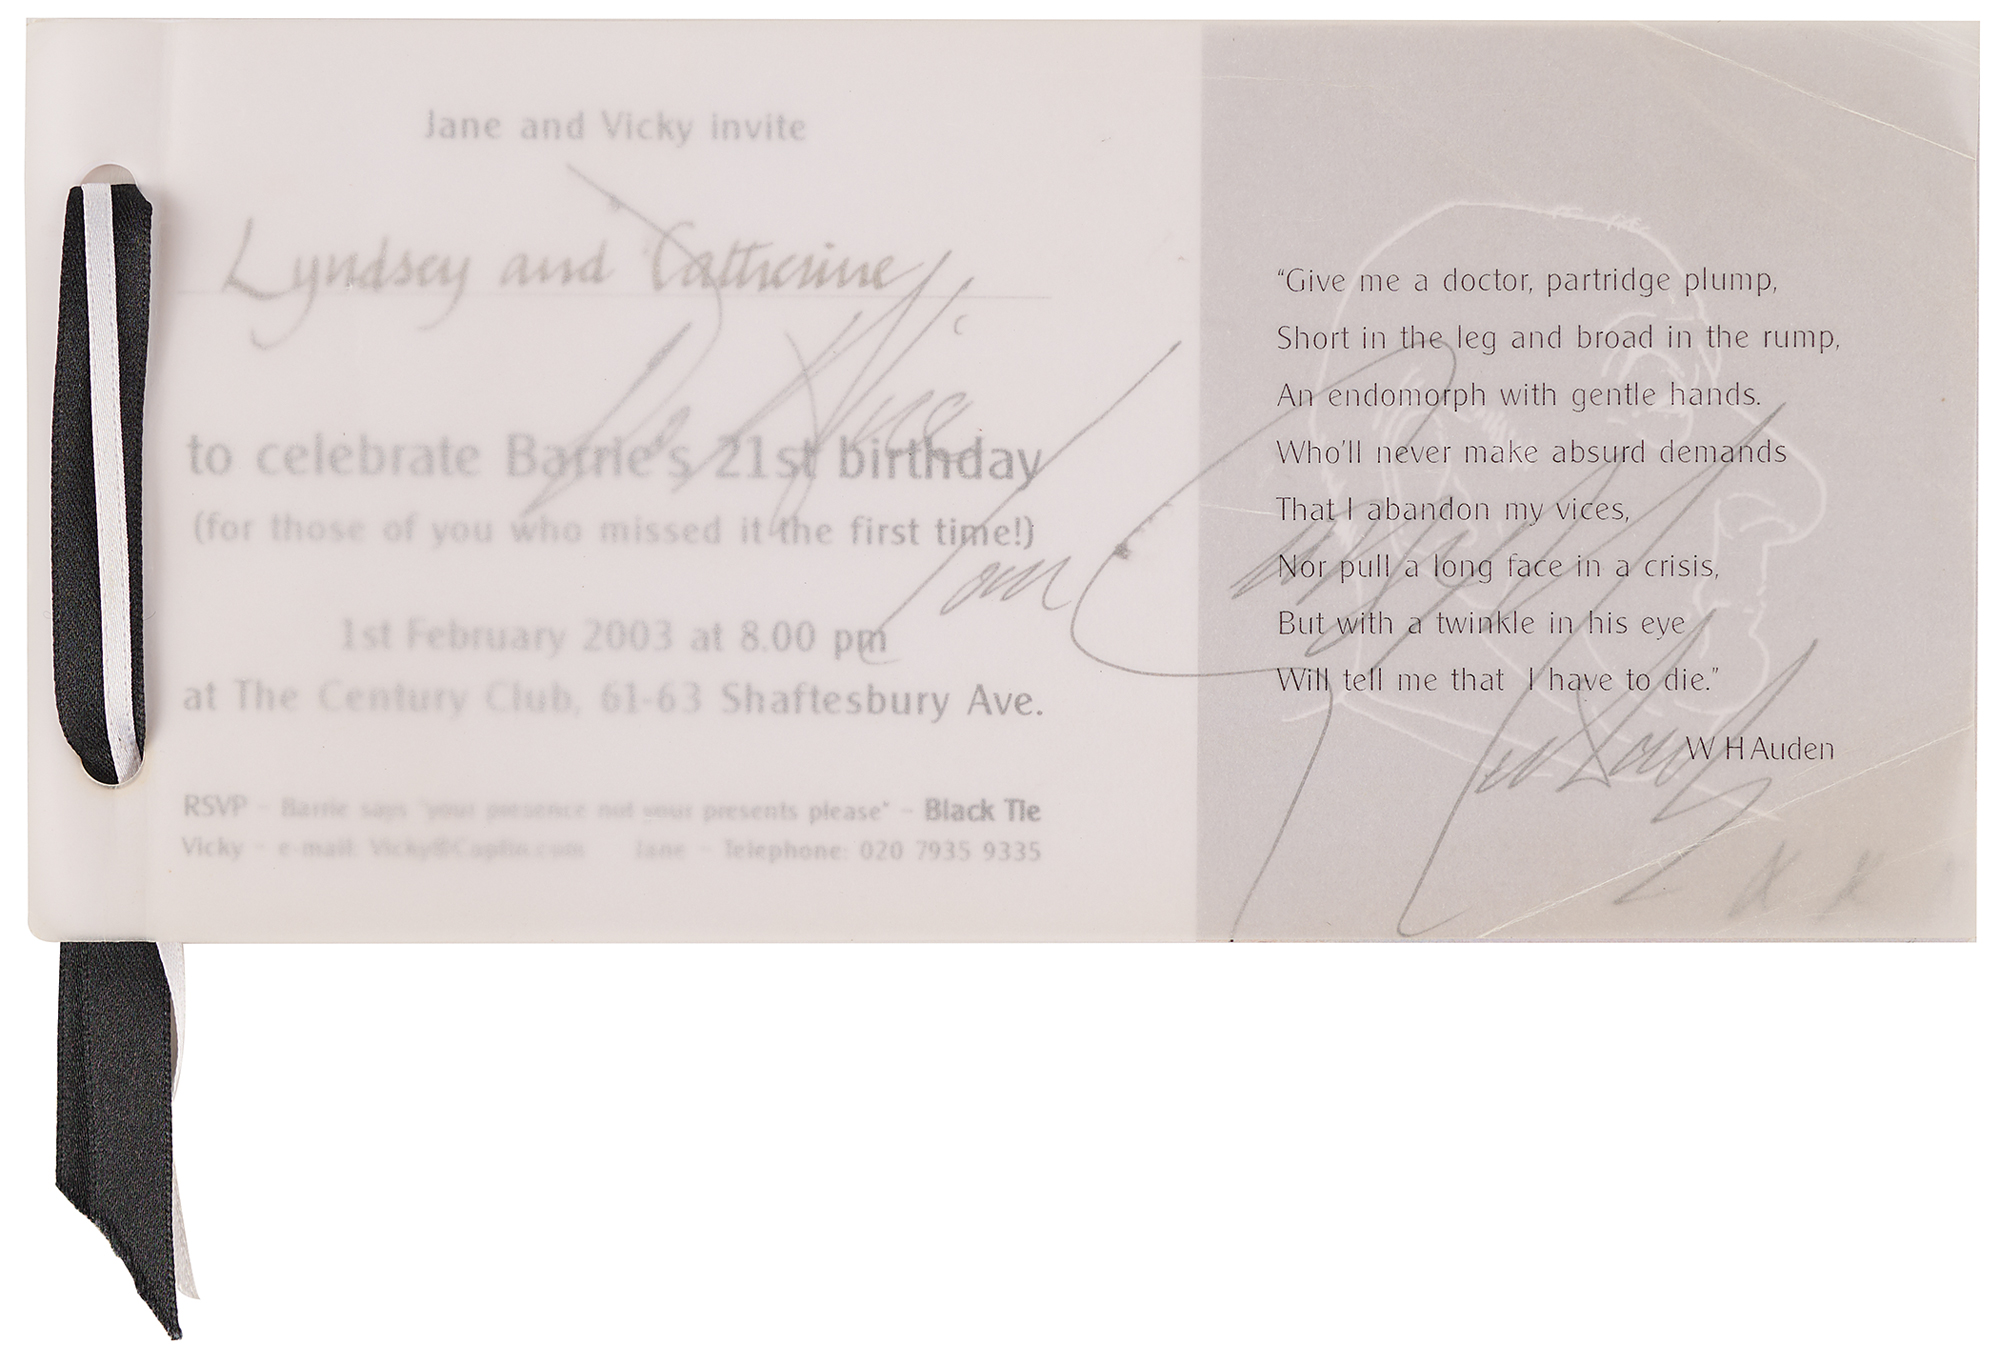 Jane and Vicky invite
Lyndsey and Catherine
to celebrate Barrie's 21st birthday
(for those of you who missed it the first time!)
1st February 2003 at 8.00 pm
at The Century Club, 61-63 Shaftesbury Ave.
RSVP - Barrie says "your presence not your presents please" - Black Tie
Vicky - e-mail: Vicky@Caplin.com Jane - Telephone: 020 7935 9335
“Give me a doctor, partridge plump,
Short in the leg and broad in the rump,
An endomorph with gentle hands.
Who'll never make absurd demands
That I abandon my vices,
Nor pull a long face in a crisis,
But with a twinkle in his eye
Will tell me that I have to die.”
W H Auden